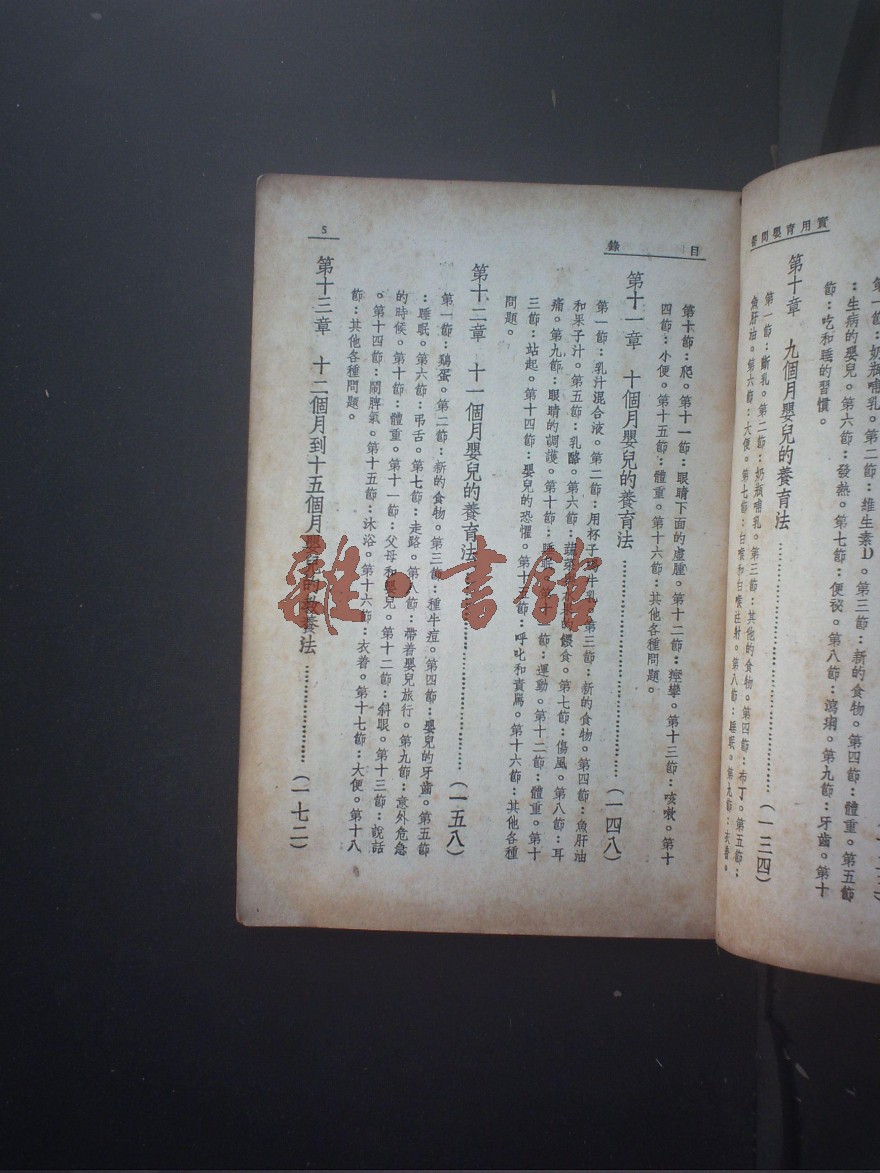 實用育嬰問答
第一節：奶瓶哺乳。第二節：維生素D。第三節：新的食物。第四節：體重。第五節
：生病的嬰兒。第六節：發熱。第七節：便秘。第八節：瀉痢。第九節：牙齒。第十
節：吃和睡的習慣。
第十章　九個月嬰兒的養育法……（一三四）
第一節：斷乳。第二節：奶瓶哺乳。第三節：其他的食物。第四節：布丁。第五節：
魚肝油。第六節：大便。第七節：白喉和白喉注射。第八節：睡眠。第九節：衣着。
目錄
第十節：爬。第十一節：眼睛下面的虛腫。第十二節：痙攣。第十三節：咳嗽。第十
四節：小便。第十五節：體重。第十六節：其他各種問題。
第十一章　十個月嬰兒的養育法……（一四八）
第一節：乳汁混合液。第二節：用杯子喝牛乳。第三節：新的食物。第四節：魚肝油
和果子汁。第五節：乳酪。第六節：蔬菜的餵食。第七節：傷風。第八節：耳
痛。第九節：眼睛的調護。第十節：睡眠。第十一節：運動。第十二節：體重。第十
三節：站起。第十四節：嬰兒的恐懼。第十五節：呼叱和責罵。第十六節：其他各種
問題。
第十二章　十一個月嬰兒的養育法……（一五八）
第一節：鷄蛋。第二節：新的食物。第三節：種牛痘。第四節：嬰兒的牙齒。第五節
：睡眠。第六節：弔舌。第七節：走路。第八節：帶着嬰兒旅行。第九節：意外危急
的時候。第十節：體重。第十一節：父母和嬰兒。第十二節：斜眼。第十三節：說話
。第十四節：鬧脾氣。第十五節：沐浴。第十六節：衣着。第十七節：大便。第十八
節：其他各種問題。
第十三章　十二個月到十五個月嬰兒的教養法……（一七二）
5
雜·書館